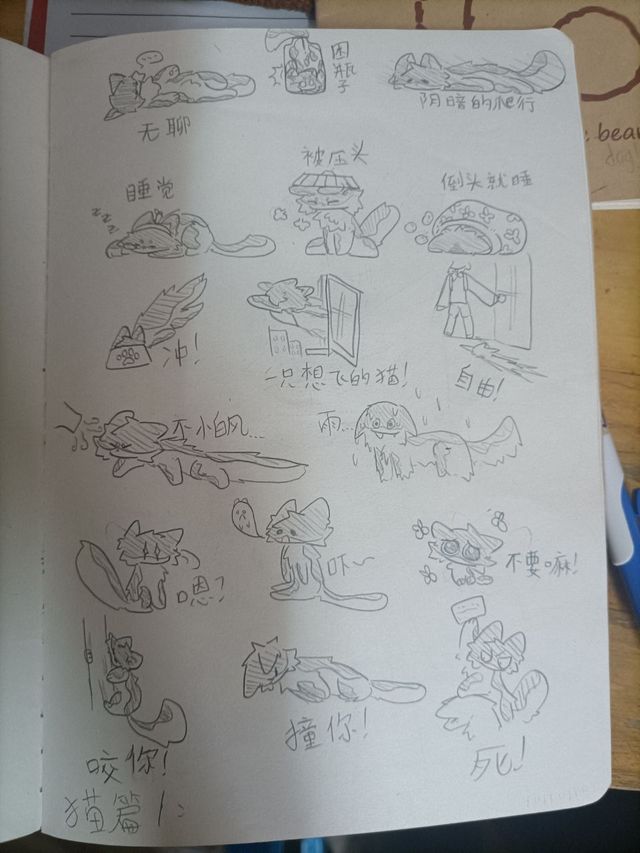 无聊
困瓶子
阴暗的爬行
睡觉
被压头
倒头就睡
zzz
冲!
一只想飞的猫!
自由!
不怕风...
雨...
嗯?
吓~
不要嘛!
咬你!
撞你!
死!
猫篇1:
bear